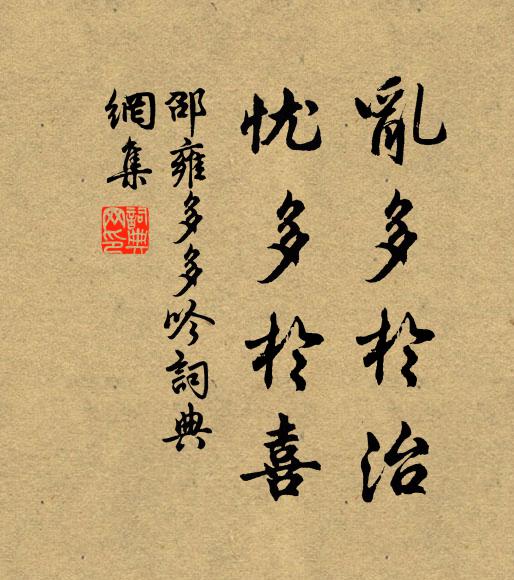 亂多於治
忧多於喜
邵雍多多吟詞典
網集
詞典
网印